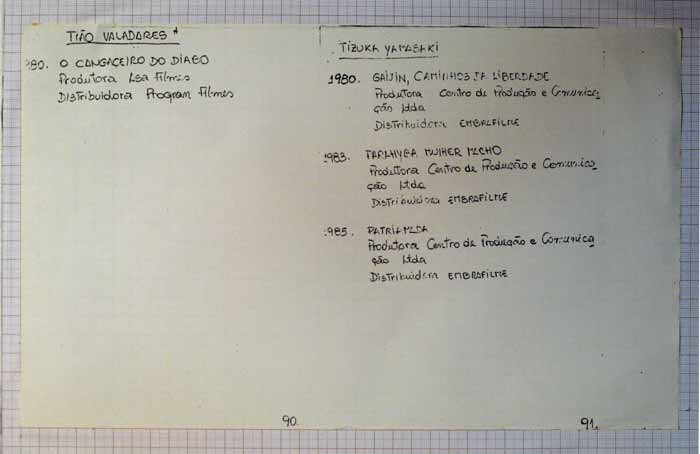 TIÃO VALADARES *
980. O CANGACEIRO DO DIABO
Produtora Asa Filmes
Distribuidora Program Filmes
90.
TIZUKA YAMASAKI
1980. GAIJIN, CAMINHOS DA LIBERDADE
Produtora Centro de Produção e Comunica
ção Ltda
Distribuidora EMBRAFILME
1983. PARAHYBA MULHER MACHO
Produtora Centro de Produção e Comunica
ção Ltda
Distribuidora EMBRAFILME
1985. PATRIAMADA
Produtora Centro de Produção e Comunica
ção Ltda
Distribuidora EMBRAFILME
91.